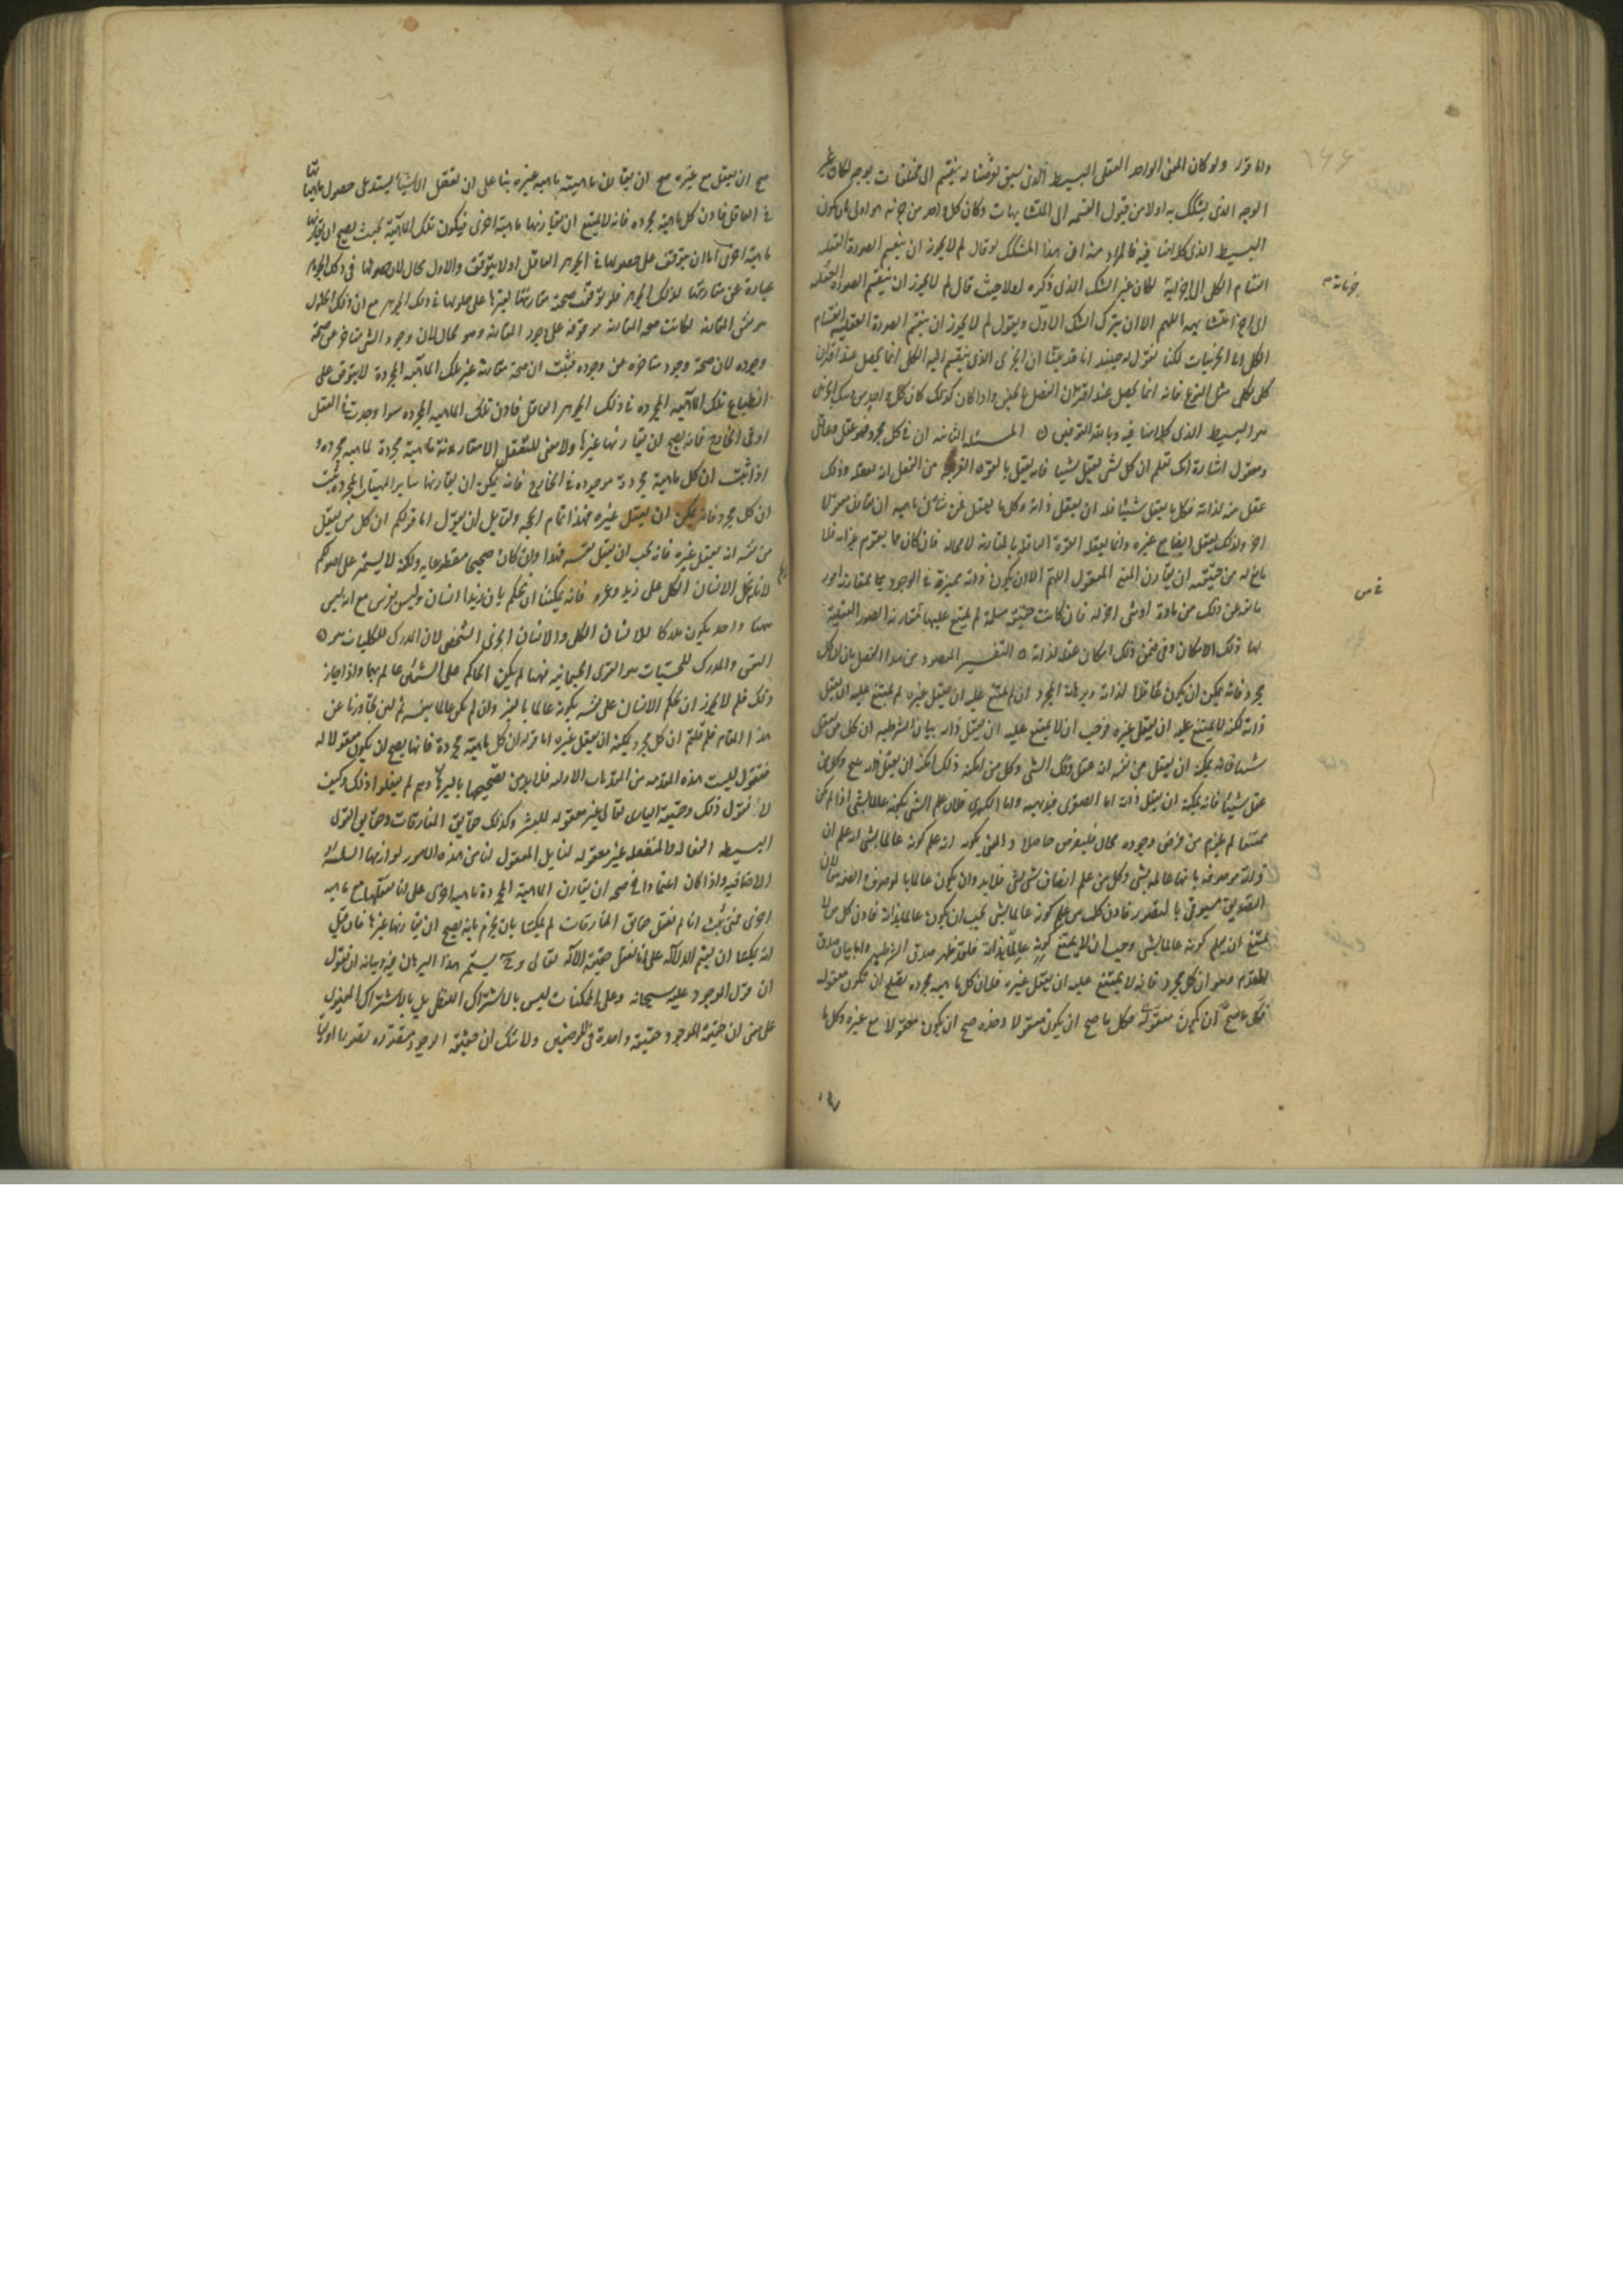 واما قوله ولو كان المعنى الواحد العقلى البسيط الذى سبق توصفنا له ينقسم الى مختلفات بوجه لكان غير
الوجه الذى يشكك به اولا من قبول القسمه الى المتشابهات وكان كل واحد من اجزائه هو اولى بان يكون
البسيط الذى كلامنا فيه فالمراد منه ان هذا المشكك لو قال لم لا يجوز ان ينقسم الصورة العقليه
انقسام الكلى الى اجزائه لكان غير الشك الذى ذكره اولا حيث قال لم لا يجوز ان ينقسم الصورة العقليه
الى اجزاء متشابهه اللهم الا ان يترك الشك الاول ويقول لم لا يجوز ان ينقسم الصورة العقليه انقسام
الكلى الى الجزئيات لكنا نقول له حينئذ انا قد بينا ان الجزئى الذى ينقسم اليه الكلى انما يحصل عند اقتران
كلى بكلى مثل النوع فانه انما يحصل عند اقتران الفصل بالجنس واذا كان كذلك كان كل واحد من
هو البسيط الذى كلامنا فيه وبالله التوفيق المسئله الثانيه ان فى كل مجرد فهو عقل وعاقل
ومعقول اشارة انك تعلم ان كل شى يعقل شيئا فانه يعقل بالقوة القريبه من الفعل انه يعقله وذلك
عقل منه لذاته فكل ما يعقل شيئا فله ان يعقل ذاته وكل ما يعقل فمن شانه ماهيته ان تقارن معقولا
اخر ولذلك يعقل ايضا مع غيره وانما يعقله القوة العاقله بالمقارنة لا محاله فان كان مما يقوم بذاته فلا
مانع له من حقيقته ان يقارن المعنى المعقول اللهم الا ان يكون ذاته ممنوة فى الوجود بمقارنة امور
مانعه عن ذلك من مادة او شى اخر له فان كانت حقيقته مسلمة لم يمتنع عليها مقارنة الصور العقلية
لها ذلك الامكان وفى ضمن ذلك امكان عقله لذاته التفسير المقصود من هذا الفصل بيان ان كل
مجرد فانه يمكن ان يكون عاقلا لذاته وبرهانه المجرد ان لم يمتنع عليه ان يعقل غيره لم يمتنع عليه ان يعقل
ذاته لكنه لا يمتنع عليه ان يعقل غيره فوجب ان لا يمتنع عليه ان يعقل ذاته بيان الشرطيه ان كل من يعقل
شيئا فانه يمكنه ان يعقل من نفسه انه عقل ذلك الشى وكل من امكنه ذلك امكنه ان يعقل ذاته ينتج وكل من
عقل شيئا فانه يمكنه ان يعقل ذاته اما الصغرى فبديهيه واما الكبرى فلان علم الشى بكونه عالما بشى اذا لم يكن
ممتنعا لم يلزم من فرض وجوده محال فليفرض حاصلا والمعنى بكونه انه علم كونه عالما بشى انه علم ان
ذاته موصوفه بانها عالمه بشى وكل من علم اتصاف شى بشى فلا بد وان يكون عالما بالموصوف والصفه لان
التصديق مسبوق بالتصور فاذن كل من علم كونه عالما بشى يجب ان يكون عالما بذاته فاذن كل من لا
يمتنع ان يعلم كونه عالما بشى وجب ان لا يمتنع كونه عالما بذاته فقد ظهر صدق الشرطيه واما بيان صدق
المقدم وهو ان كل مجرد فانه لا يمتنع عليه ان يعقل غيره فلان كل ماهيه مجرده يصح ان تكون معقوله
فكل ما صح ان يكون معقولا فكل ما صح ان يكون معقولا وحده صح ان يكون معقولا مع غيره وكل ما
صح ان يعقل مع غيره صح ان يقارن ماهيته ماهيه غيره بنا على ان تعقل الاشيا يستدعى حصول ماهياتها
فى العاقل فاذن كل ماهية مجرده فانه لا يمتنع ان يقارنها ماهية اخرى فيكون تلك الماهية بحيث يصح ان يقارنها
ماهية اخرى اما ان يتوقف على حصولها فى الجوهر العاقل او لا يتوقف والاول محال لان حصولها فى ذلك الجوهر
عبارة عن مقارنتها لذلك الجوهر فلو توقف صحة مقارنتها لغيرها على حلولها فى ذلك الجوهر مع ان ذلك الحلول
هو نفس المقارنة لكانت صحه المقارنه موقوفه على وجود المقارنه وهو محال لان وجود الشى متاخر عن صحة
وجوده لان صحة وجود متاخره عن وجوده فثبت ان صحة مقارنة غير تلك الماهيه المجردة لا يتوقف على
انطباع تلك الماهيه المجرده فى ذلك الجوهر العاقل فاذن تلك الماهيه المجرده سوا وجدت فى العقل
او فى الخارج فانه يصح ان يقارنها غيرها ولا معنى للتعقل الا مقارنة ماهية مجردة لماهيه مجرده
اذا ثبت ان كل ماهية مجردة موجوده فى الخارج فانه يمكن ان يقارنها ساير الماهيات المجرده ثبت
ان كل مجرد فانه يمكن ان يعقل غيره فهذا تمام الحجه ولقايل ان يقول اما قولكم ان كل من يعقل
من نفسه انه يعقل غيره فانه يجب ان يعقل نفسه فهذا وان كان صحيحا مقطوعا به ولكنه لا يستمر على اصولكم
لانا نحمل الانسان الكلى على زيد وعمرو فانه يمكننا ان نحكم بان زيدا انسان وليس بفرس مع انه ليس
ههنا واحد يكون مدركا للانسان الكلى والانسان الجزئى الشخصى لان المدرك للكليات هو
النفس والمدرك للحسيات هو القوى الجسمانيه فهنا لم يكن الحاكم على الشيئين عالما بهما واذا جاز
ذلك فلم لا يجوز ان يحكم الانسان على نفسه بكونه عالما بالغير وان لم يكن عالما بنفسه ثم لئن تجاوزنا عن
هذا المقام فلم قلتم ان كل مجرد يمكنه ان يعقل غيره اما قوله لان كل ماهية مجردة فانها يصح ان يكون معقوله
فنقول ليست هذه المقدمه من المقدمات الاوليه فلا بد من تصحيحها بالبرهان وهم لم يفعلوا ذلك وكيف
لا نقول ذلك وحقيقة البارى تعالى غير معقوله للبشر وكذلك حقايق المفارقات وحقايق القوى
البسيطه الفعاله والمنفعله غير معقوله لنا بل المعقول لنا من هذه الامور لوازمها السلبية
الاضافيه واذا كان اعتمادا فى صحه ان يقارن الماهية المجردة ماهيه اخرى على انا نعقلها مع ماهيه
اخرى فمتى ثبت انا لم نعقل حقايق المفارقات لم يمكننا بان نجزم بانه يصح ان يقارنها غيرها فان قيل
انه يمكننا ان نقيم الدلاله على انا نعقل حقيقه الاله تعالى وح يستمر هذا البرهان فيه وبيانه ان نقول
ان قول الموجود عليه سبحانه وعلى الممكنات ليس بالاشتراك اللفظى بل بالاشتراك المعنوى
على معنى ان حقيقة الوجود حقيقة واحدة فى الموضعين ولا شك ان حقيقة الوجود متصوره تصورا اوليا